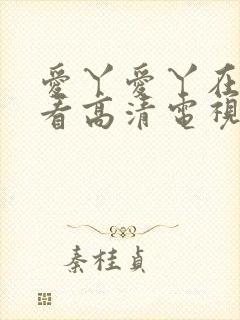 愛丫愛丫在
看高清電視
秦桂貞